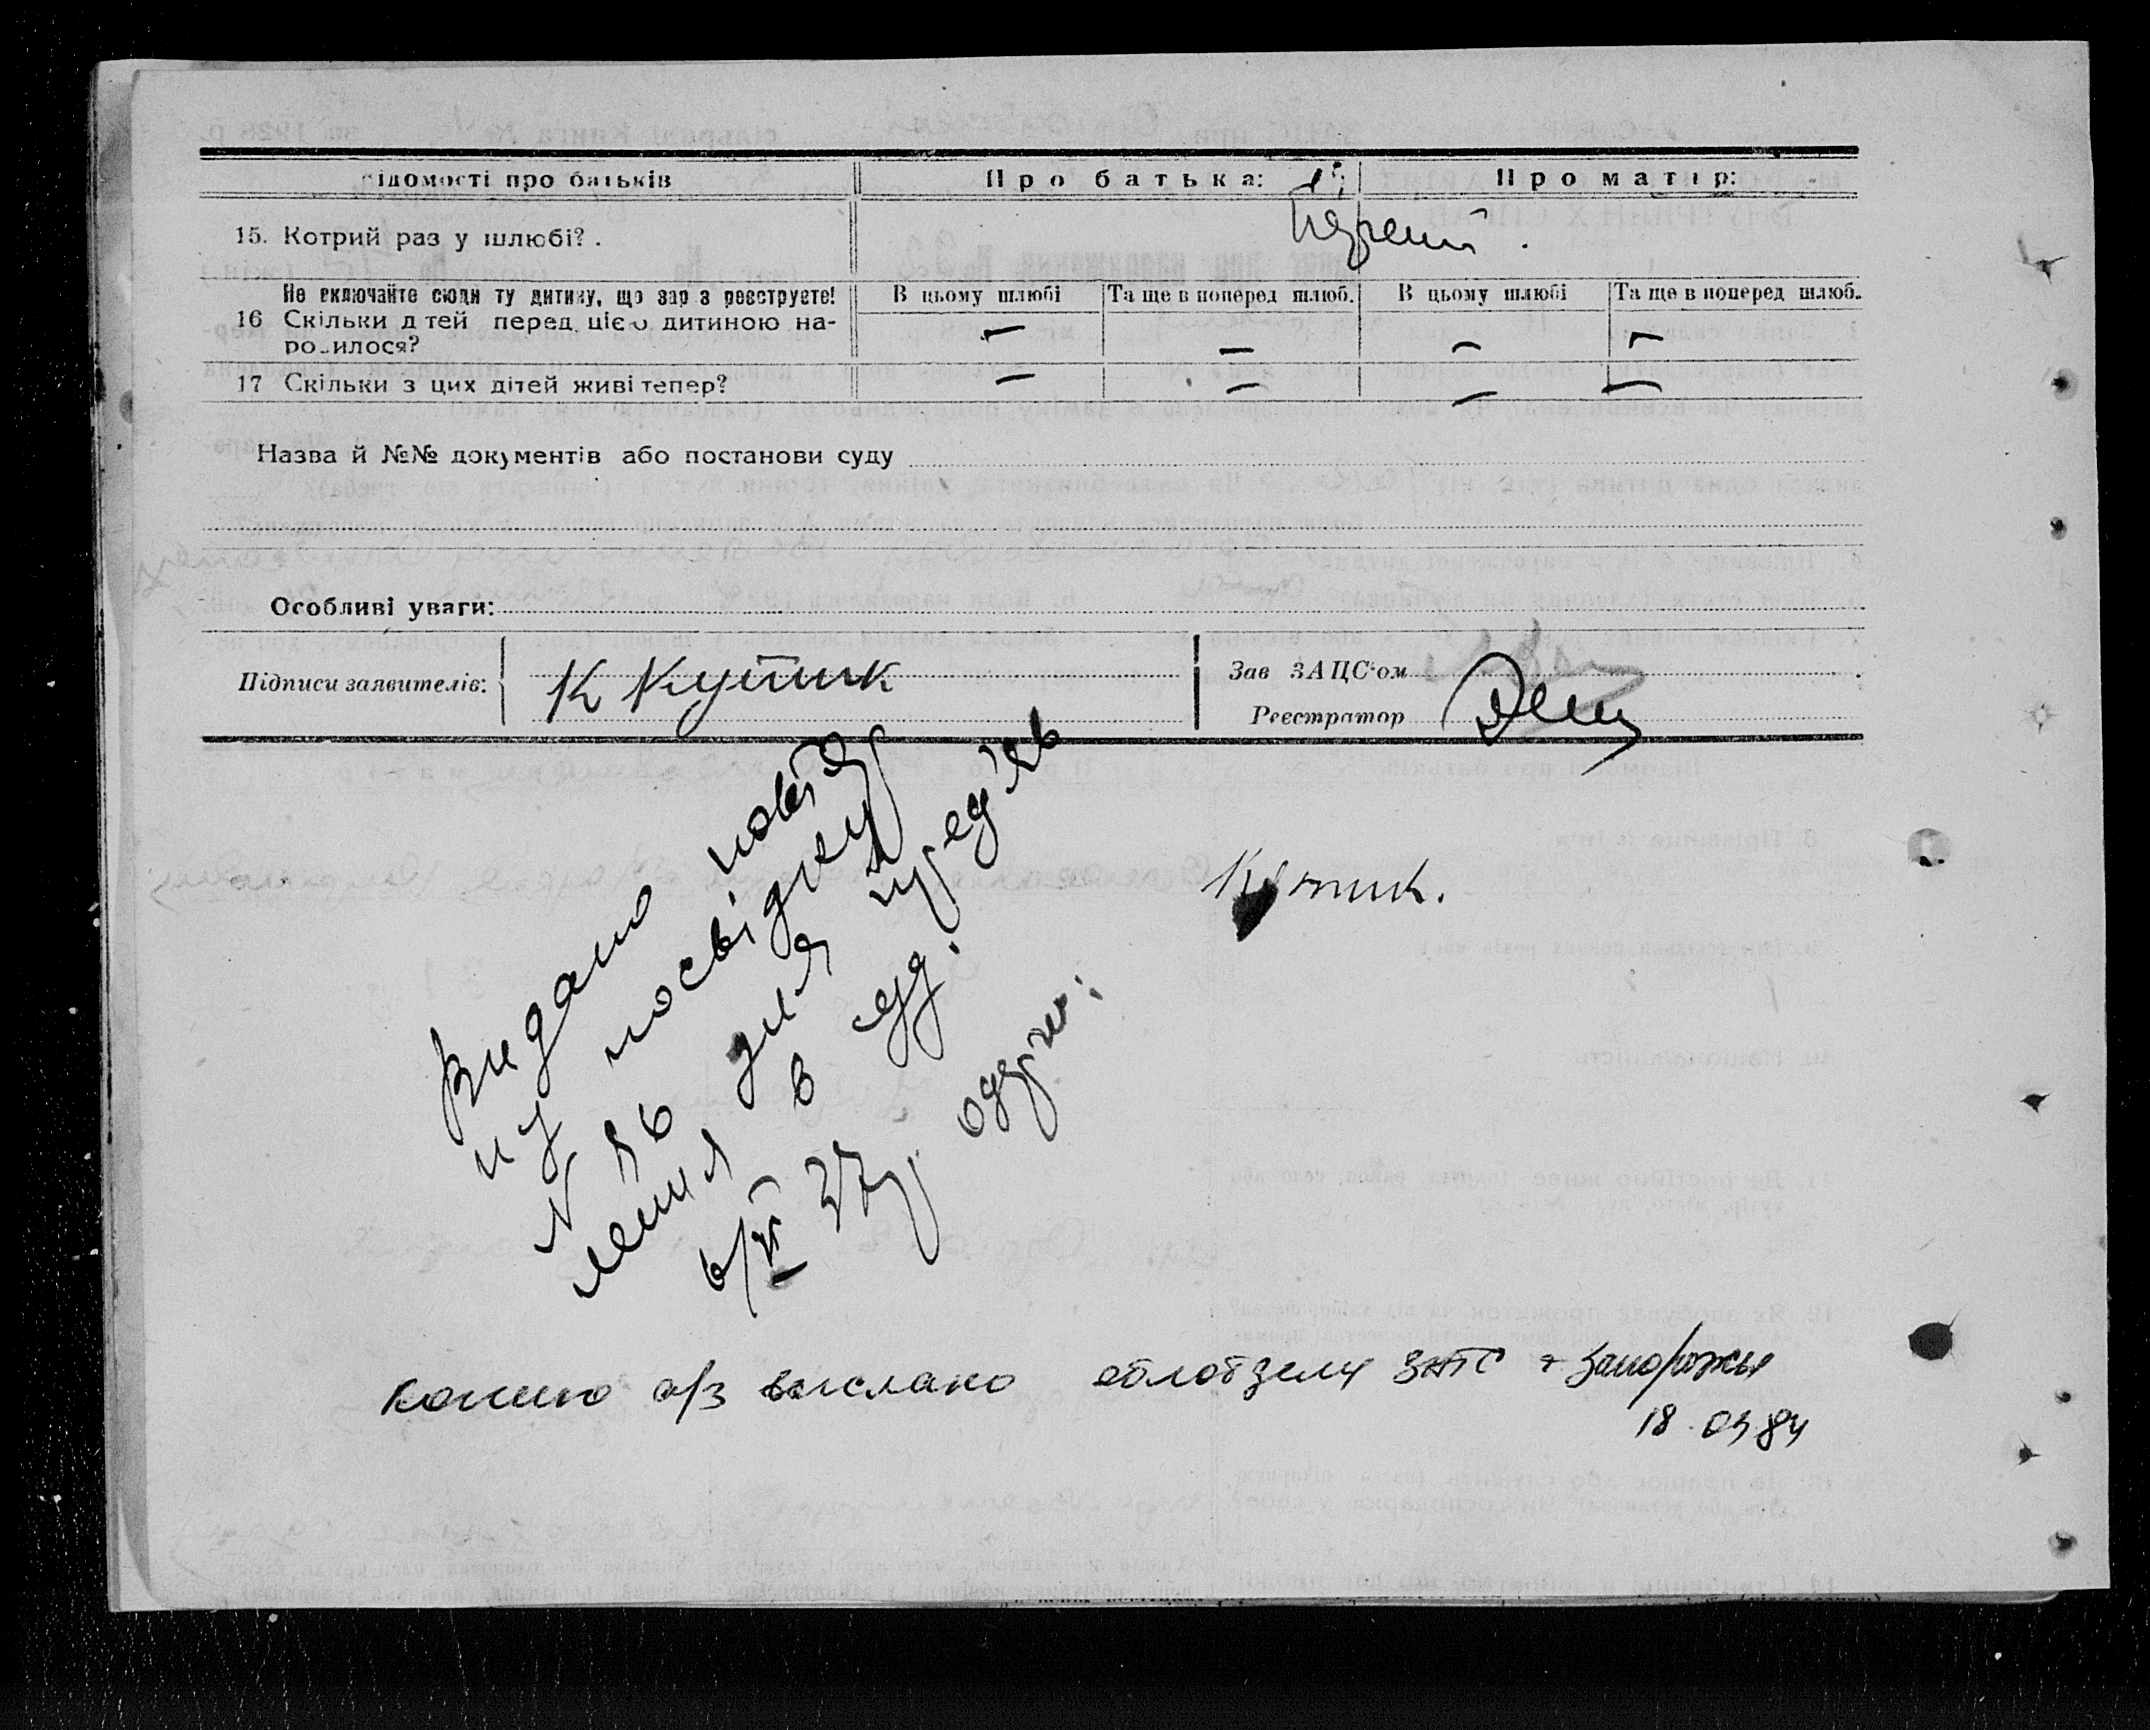 Відомості про батьків
Про батька:
Про матір:
15. Котрий раз у шлюбі?
перший.
Не включайте сюди ту дитину, що зараз реєструєте!
В цьому шлюбі
Та ще в поперед шлюб.
В цьому шлюбі
Та ще в поперед шлюб.
16 Скільки дітей перед цією дитиною на-
родилося?
— — — —
17 Скільки з цих дітей живі тепер?
— — — —
Назва й №№ документів або постанови суду
Особливі уваги:
Підписи заявителів:
К Кутик
Зав ЗАЦС'ом
Реєстратор
Видано повтор
ну посвідку
N 86 для пред'яв
лення в суд.
6/VI 37р. одерж:
Кутик.
Копию а/з выслано облотделу ЗАГС г Запорожья
18.04.84